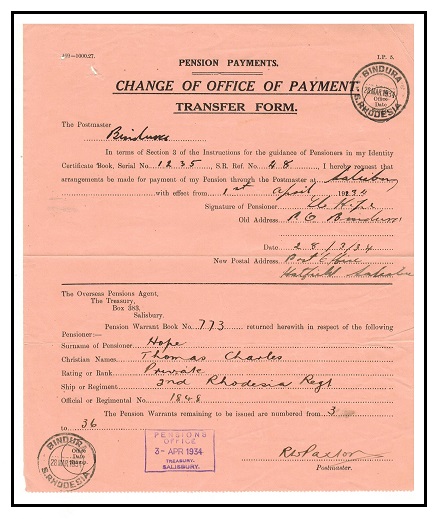 I.P. 5.
PENSION PAYMENTS.
CHANGE OF OFFICE OF PAYMENT
TRANSFER FORM.
BINDURA
28 MAR 1934
Office
Date
S. RHODESIA
The Postmaster
Bindura
In terms of Section 3 of the Instructions for the guidance of Pensioners in my Identity
Certificate Book, Serial No. 1235 S.R. Ref. No. 48, I hereby request that
arrangements be made for payment of my Pension through the Postmaster at Salisbury
with effect from 1st April, 1934
Signature of Pensioner Hope
Old Address P.O Bindura
Date 28/3/34
New Postal Address Post Office
Hatfield Salisbury
The Overseas Pensions Agent,
The Treasury,
Box 383,
Salisbury.
Pension Warrant Book No. 773 returned herewith in respect of the following
Pensioner:—
Surname of Pensioner Hope
Christian Names Thomas Charles
Rating or Rank Private
Ship or Regiment 2nd Rhodesia Regt
Official or Regimental No. 1848
The Pension Warrants remaining to be issued are numbered from 3
to 36
BINDURA
28 MAR
Office
Date
S. RHODESIA
PENSIONS
OFFICE
3- APR 1934
TREASURY.
SALISBURY.
Postmaster.